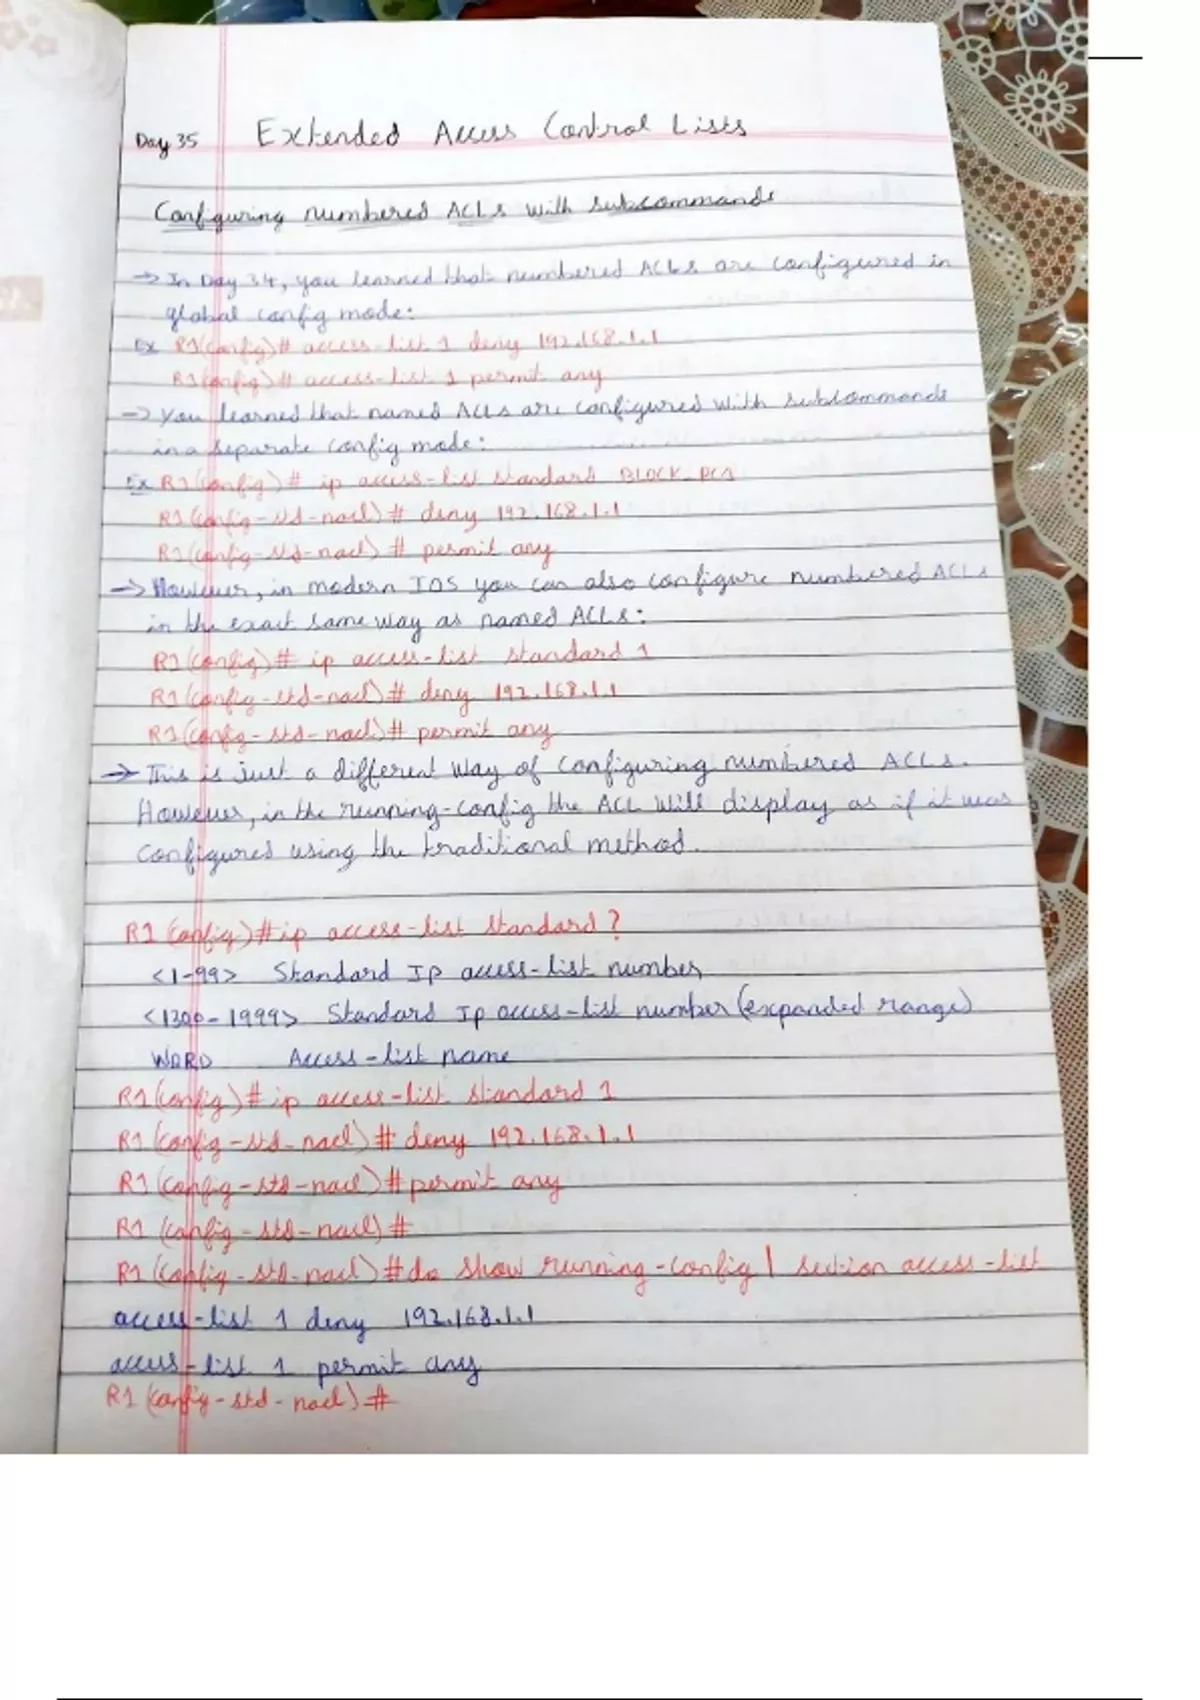 Day 35 Extended Access Control Lists
Configuring numbered ACLs with subcommands
→ In Day 34, you learned that numbered ACLs are configured in
global config mode:
Ex R1(config)# access-list 1 deny 192.168.1.1
R1(config)# access-list 1 permit any
→ You learned that named ACLs are configured with subcommands
in a separate config mode:
Ex R1(config)# ip access-list standard BLOCK_PC1
R1(config-std-nacl)# deny 192.168.1.1
R1(config-std-nacl)# permit any
→ However, in modern IOS you can also configure numbered ACLs
in the exact same way as named ACLs:
R1(config)# ip access-list standard 1
R1(config-std-nacl)# deny 192.168.1.1
R1(config-std-nacl)# permit any
→ This is just a different way of configuring numbered ACLs.
However, in the running-config the ACL will display as if it was
configured using the traditional method.
R1(config)#ip access-list standard?
<1-99> Standard IP access-list number
<1300-1999> Standard Ip access-list number (expanded range)
WORD Access-list name
R1(config)# ip access-list standard 1
R1(config-std-nacl)# deny 192.168.1.1
R1(config-std-nacl)#permit any
R1(config-std-nacl)#
R1(config-std-nacl)#do show running-config | section access-list
access-list 1 deny 192.168.1.1
access-list 1 permit any
R1(config-std-nacl)#